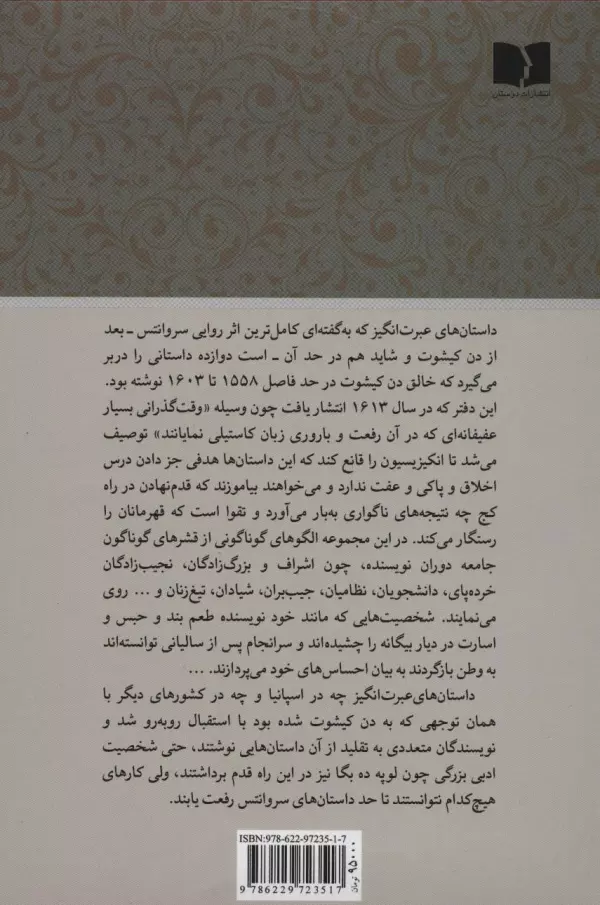 انتشارات دبستان
داستان‌های عبرت‌انگیز که به‌گفته‌ای کامل‌ترین اثر روایی سروانتس ـ بعد
از دن کیشوت و شاید هم در حد آن ـ است دوازده داستانی را دربر
می‌گیرد که خالق دن کیشوت در حد فاصل ۱۵۵۸ تا ۱۶۰۳ نوشته بود.
این دفتر که در سال ۱۶۱۳ انتشار یافت چون وسیله «وقت‌گذرانی بسیار
عفیفانه‌ای که در آن رفعت و باروری زبان کاستیلی نمایانند» توصیف
می‌شد تا انگیزیسیون را قانع کند که این داستان‌ها هدفی جز دادن درس
اخلاق و پاکی و عفت ندارد و می‌خواهند بیاموزند که قدم‌نهادن در راه
کج چه نتیجه‌های ناگواری به‌بار می‌آورد و تقوا است که قهرمانان را
رستگار می‌کند. در این مجموعه الگوهای گوناگونی از قشرهای گوناگون
جامعه دوران نویسنده، چون اشراف و بزرگ‌زادگان، نجیب‌زادگان
خرده‌پای، دانشجویان، نظامیان، جیب‌بران، شیادان، تیغ‌زنان و ... روی
می‌نمایند. شخصیت‌هایی که مانند خود نویسنده طعم بند و حبس و
اسارت در دیار بیگانه را چشیده‌اند و سرانجام پس از سالیانی توانسته‌اند
به وطن بازگردند به بیان احساس‌های خود می‌پردازند. ...
داستان‌های‌عبرت‌انگیز چه در اسپانیا و چه در کشورهای دیگر با
همان توجهی که به دن کیشوت شده بود با استقبال روبه‌رو شد و
نویسندگان متعددی به تقلید از آن داستان‌هایی نوشتند، حتی شخصیت
ادبی بزرگی چون لوپه ده بگا نیز در این راه قدم برداشتند، ولی کارهای
هیچ‌کدام نتوانستند تا حد داستان‌های سروانتس رفعت یابند.
ISBN:978-622-97235-1-7
۹۵۰۰۰ تومان
9 786229 723517